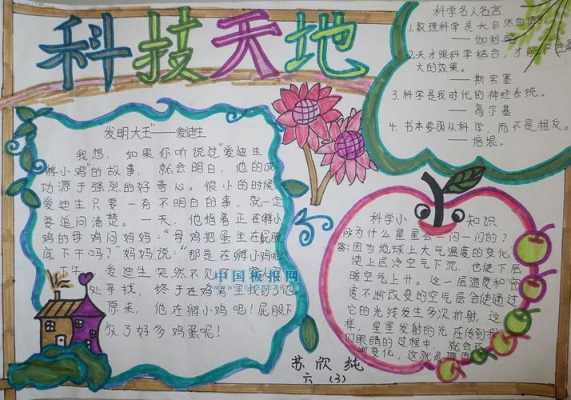 科技天地
发明大王——爱迪生
我想，如果你听说过"爱迪生
孵小鸡"的故事，就会明白，他的成
功源于强烈的好奇心。很小的时候
爱迪生只要一有不明白的事，就一定
要追问清楚。一天，他指着正在孵小
鸡的母鸡问妈妈："母鸡把蛋坐在屁股
底下干吗？"妈妈说："那是在孵小鸡呢
午，爱迪生突然不见
处寻找，终于在鸡窝里找到了他
原来，他在孵小鸡呢！屁股下
放了好多鸡蛋呢！
中国板报网
科学名人名言
1.数理科学是大自然的语言
——伽利略
2.天才跟科学结合，才能
大的效果。
——斯宾塞
3.科学是我时代的神经系统。
——高尔基
4.书本要服从科学，而不是相反。
——培根。
科学小知识
问为什么星星会一闪一闪的？
答：因为地球上大气温度的变化
使上层冷空气下沉，也使下层
暖空气上升。这一层温度和密
度不断改变的空气层会使通过
它的光线发生多次折射，这
样，星星发射的光在传到
们眼睛的过程中，就会
变化，这就
苏欣纯
六（3）